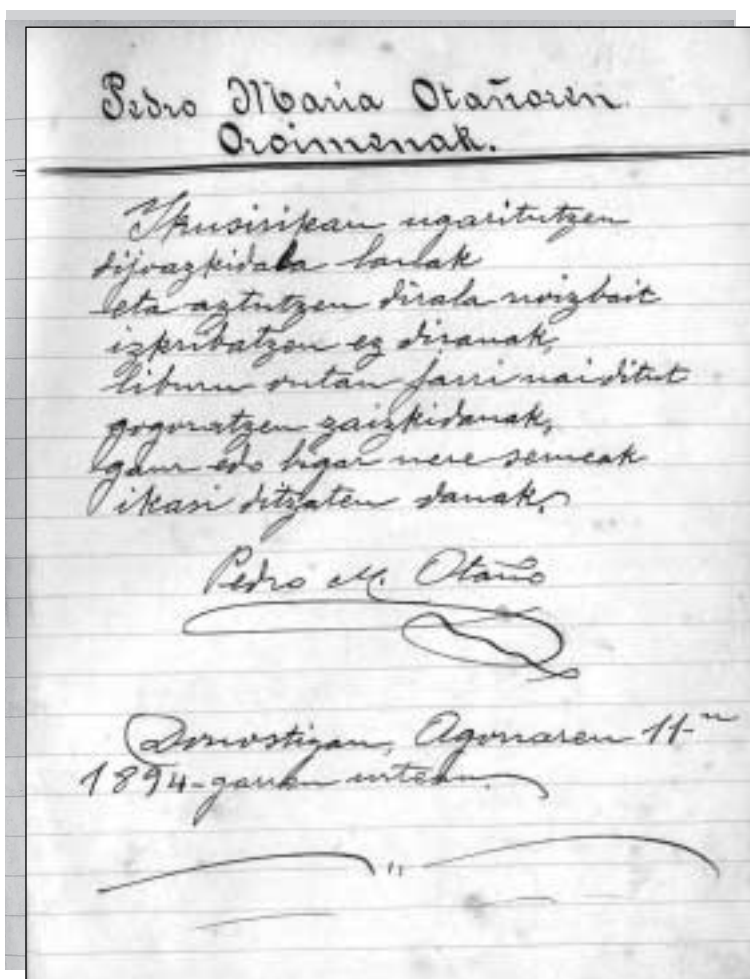 Pedro Maria Otañoren
Oroimenak.
Ikusirikan ugaritutzen
dijoazkidala lanak
eta aztutzen dirala noizbait
izkribatzen ez diranak,
liburu ontan jarri nai ditut
gogoratzen zaizkidanak,
gaur edo bigar nere semeak
ikasi ditzaten danak.
Pedro M. Otaño
Donostiyan, Agorraren 11-n
1894-garren urtean.